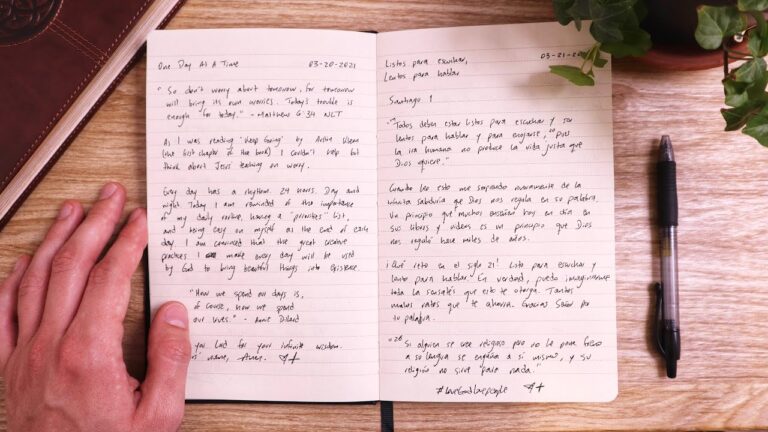 One Day At A Time 03-20-2021
"So don't worry about tomorrow, for tomorrow
will bring its own worries. Today's trouble is
enough for today." - Matthew 6:34 NLT
As I was reading "Keep Going" by Austin Kleon
(the first chapter of the book) I couldn't help but
think about Jesus' teaching on worry.
Every day has a rhythm. 24 hours. Day and
night. Today I am reminded of the importance
of my daily routine, having a "priorities" list,
and being easy on myself at the end of each
day. I am convinced that the great creative
practices I make every day will be used
by God to bring beautiful things into existence
"How we spend our days is,
of course, how we spend
our lives." - Annie Dillard
you Lord for your infinite wisdom.
name, Amen.
Listos para escuchar, 03-21-20
Lentos para hablar
Santiago 1
"Todos deben estar listos para escuchar y ser
lentos para hablar y para enojarse, 20 pues
la ira humana no produce la vida justa que
Dios quiere."
Cuando leo esto me sorprendo nuevamente de la
infinita sabiduría que Dios nos regala en su palabra.
Un principio que muchos enseñan hoy en día en
sus libros y videos es un principio que Dios
nos regaló hace miles de años.
¡Qué reto en el siglo 21! Listo para escuchar y
lento para hablar. En verdad, puedo imaginarme
toda la sensatez que esto te otorga. Tantos
malos ratos que te ahorra. Gracias Señor por
tu palabra.
"26 Si alguien se cree religioso pero no le pone freno
a su lengua se engaña a sí mismo, y su
religión no sirve para nada."
#LoveGodLovePeople